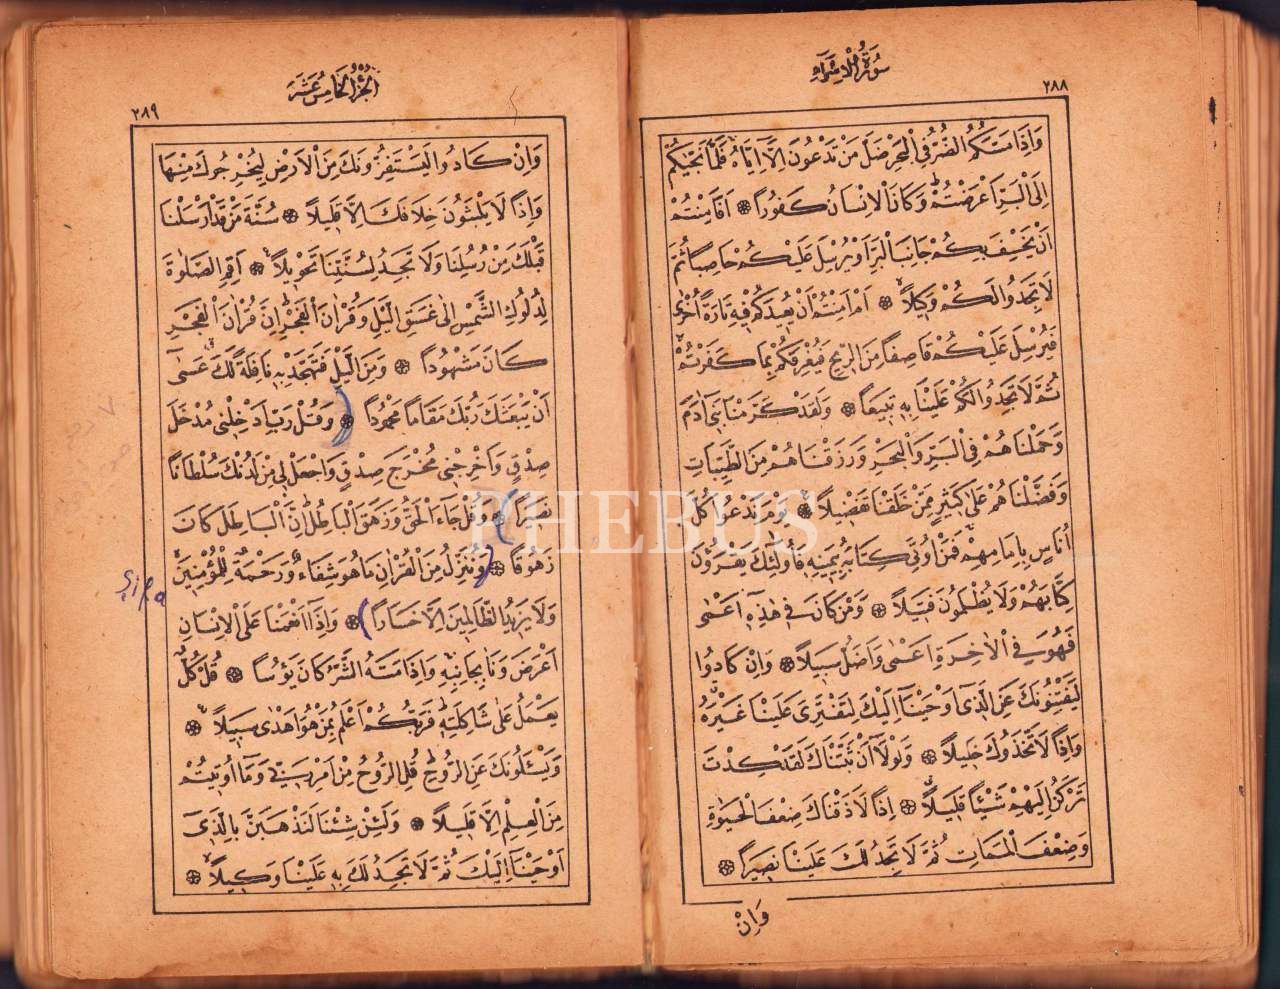 سورة الاسراء
٢٨٨
وَاِذَا مَسَّكُمُ الضُّرُّ فِى الْبَحْرِ ضَلَّ مَنْ تَدْعُونَ اِلَّٓا اِيَّاهُ فَلَمَّا نَجّٰيكُمْ
اِلَى الْبَرِّ اَعْرَضْتُمْ وَكَانَ الْاِنْسَانُ كَفُورًا ۞ اَفَاَمِنْتُمْ
اَنْ يَخْسِفَ بِكُمْ جَانِبَ الْبَرِّ اَوْ يُرْسِلَ عَلَيْكُمْ حَاصِبًا ثُمَّ
لَا تَجِدُوا لَكُمْ وَكِيلًا ۞ اَمْ اَمِنْتُمْ اَنْ يُعِيدَكُمْ فِيهِ تَارَةً اُخْرٰى
فَيُرْسِلَ عَلَيْكُمْ قَاصِفًا مِنَ الرِّيحِ فَيُغْرِقَكُمْ بِمَا كَفَرْتُمْ
ثُمَّ لَا تَجِدُوا لَكُمْ عَلَيْنَا بِهِ تَبِيعًا ۞ وَلَقَدْ كَرَّمْنَا بَنِىٓ اٰدَمَ
وَحَمَلْنَاهُمْ فِى الْبَرِّ وَالْبَحْرِ وَرَزَقْنَاهُمْ مِنَ الطَّيِّبَاتِ
وَفَضَّلْنَاهُمْ عَلٰى كَثِيرٍ مِمَّنْ خَلَقْنَا تَفْضِيلًا ۞ يَوْمَ نَدْعُوا كُلَّ
اُنَاسٍ بِاِمَامِهِمْ فَمَنْ اُوتِىَ كِتَابَهُ بِيَمِينِهِ فَاُولٰٓئِكَ يَقْرَؤُنَ
كِتَابَهُمْ وَلَا يُظْلَمُونَ فَتِيلًا ۞ وَمَنْ كَانَ فِى هٰذِهِٓ اَعْمٰى
فَهُوَ فِى الْاٰخِرَةِ اَعْمٰى وَاَضَلُّ سَبِيلًا ۞ وَاِنْ كَادُوا
لَيَفْتِنُونَكَ عَنِ الَّذِىٓ اَوْحَيْنَٓا اِلَيْكَ لِتَفْتَرِىَ عَلَيْنَا غَيْرَهُ
وَاِذًا لَاتَّخَذُوكَ خَلِيلًا ۞ وَلَوْلَٓا اَنْ ثَبَّتْنَاكَ لَقَدْ كِدْتَ
تَرْكَنُ اِلَيْهِمْ شَيْئًا قَلِيلًا ۞ اِذًا لَاَذَقْنَاكَ ضِعْفَ الْحَيٰوةِ
وَضِعْفَ الْمَمَاتِ ثُمَّ لَا تَجِدُ لَكَ عَلَيْنَا نَصِيرًا ۞
وَاِنْ
الجُزْءُ الْخَامِسُ عَشَرَ
٢٨٩
وَاِنْ كَادُوا لَيَسْتَفِزُّونَكَ مِنَ الْاَرْضِ لِيُخْرِجُوكَ مِنْهَا
وَاِذًا لَا يَلْبَثُونَ خِلَافَكَ اِلَّا قَلِيلًا ۞ سُنَّةَ مَنْ قَدْ اَرْسَلْنَا
قَبْلَكَ مِنْ رُسُلِنَا وَلَا تَجِدُ لِسُنَّتِنَا تَحْوِيلًا ۞ اَقِمِ الصَّلٰوةَ
لِدُلُوكِ الشَّمْسِ اِلٰى غَسَقِ الَّيْلِ وَقُرْاٰنَ الْفَجْرِ اِنَّ قُرْاٰنَ الْفَجْرِ
كَانَ مَشْهُودًا ۞ وَمِنَ الَّيْلِ فَتَهَجَّدْ بِهِ نَافِلَةً لَكَ عَسٰىٓ
اَنْ يَبْعَثَكَ رَبُّكَ مَقَامًا مَحْمُودًا ۞ وَقُلْ رَبِّ اَدْخِلْنِى مُدْخَلَ
صِدْقٍ وَاَخْرِجْنِى مُخْرَجَ صِدْقٍ وَاجْعَلْ لِى مِنْ لَدُنْكَ سُلْطَانًا
نَصِيرًا ۞ وَقُلْ جَٓاءَ الْحَقُّ وَزَهَقَ الْبَاطِلُ اِنَّ الْبَاطِلَ كَانَ
زَهُوقًا ۞ وَنُنَزِّلُ مِنَ الْقُرْاٰنِ مَا هُوَ شِفَٓاءٌ وَرَحْمَةٌ لِلْمُؤْمِنِينَ
Şifa
وَلَا يَزِيدُ الظَّالِمِينَ اِلَّا خَسَارًا ۞ وَاِذَٓا اَنْعَمْنَا عَلَى الْاِنْسَانِ
اَعْرَضَ وَنَاٰ بِجَانِبِهِ وَاِذَا مَسَّهُ الشَّرُّ كَانَ يَؤُسًا ۞ قُلْ كُلٌّ
يَعْمَلُ عَلٰى شَاكِلَتِهِ فَرَبُّكُمْ اَعْلَمُ بِمَنْ هُوَ اَهْدٰى سَبِيلًا ۞
وَيَسْئَلُونَكَ عَنِ الرُّوحِ قُلِ الرُّوحُ مِنْ اَمْرِ رَبِّى وَمَٓا اُوتِيتُمْ
مِنَ الْعِلْمِ اِلَّا قَلِيلًا ۞ وَلَئِنْ شِئْنَا لَنَذْهَبَنَّ بِالَّذِىٓ
اَوْحَيْنَٓا اِلَيْكَ ثُمَّ لَا تَجِدُ لَكَ بِهِ عَلَيْنَا وَكِيلًا ۞
PHEBUS